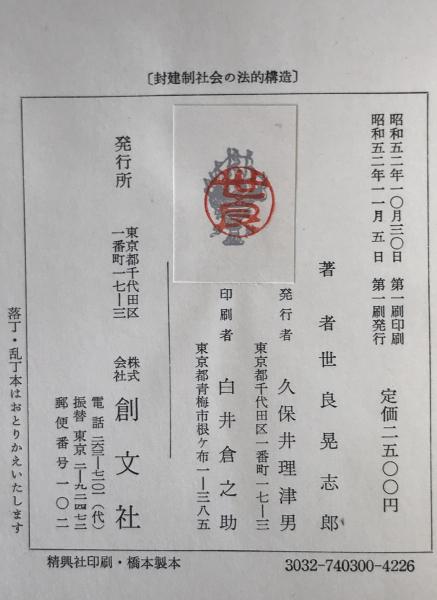 〔封建制社会の法的構造〕
昭和五二年一〇月三〇日 第一刷印刷
昭和五二年一一月五日 第一刷発行
定価二五〇〇円
著者 世良晃志郎
発行者 久保井理津男
東京都千代田区一番町一七―三
印刷者 白井倉之助
東京都青梅市根ヶ布一―三八五
世良
発行所
東京都千代田区
一番町一七―三
株式
会社
創文社
電話 二六三―七一〇一(代)
振替 東京 二―九二四七二
郵便番号 一〇二
落丁・乱丁本はおとりかえいたします
精興社印刷・橋本製本
3032-740300-4226